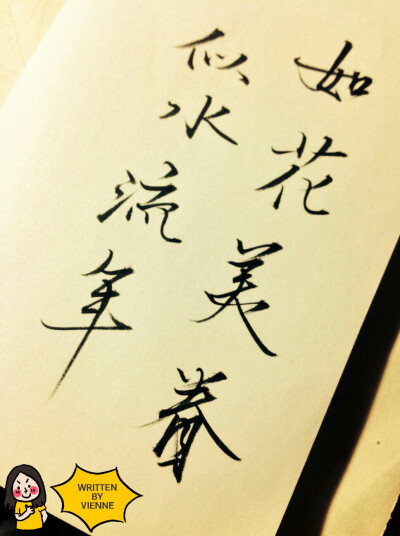 如花美眷
似水流年
WRITTEN
BY
VIENNE